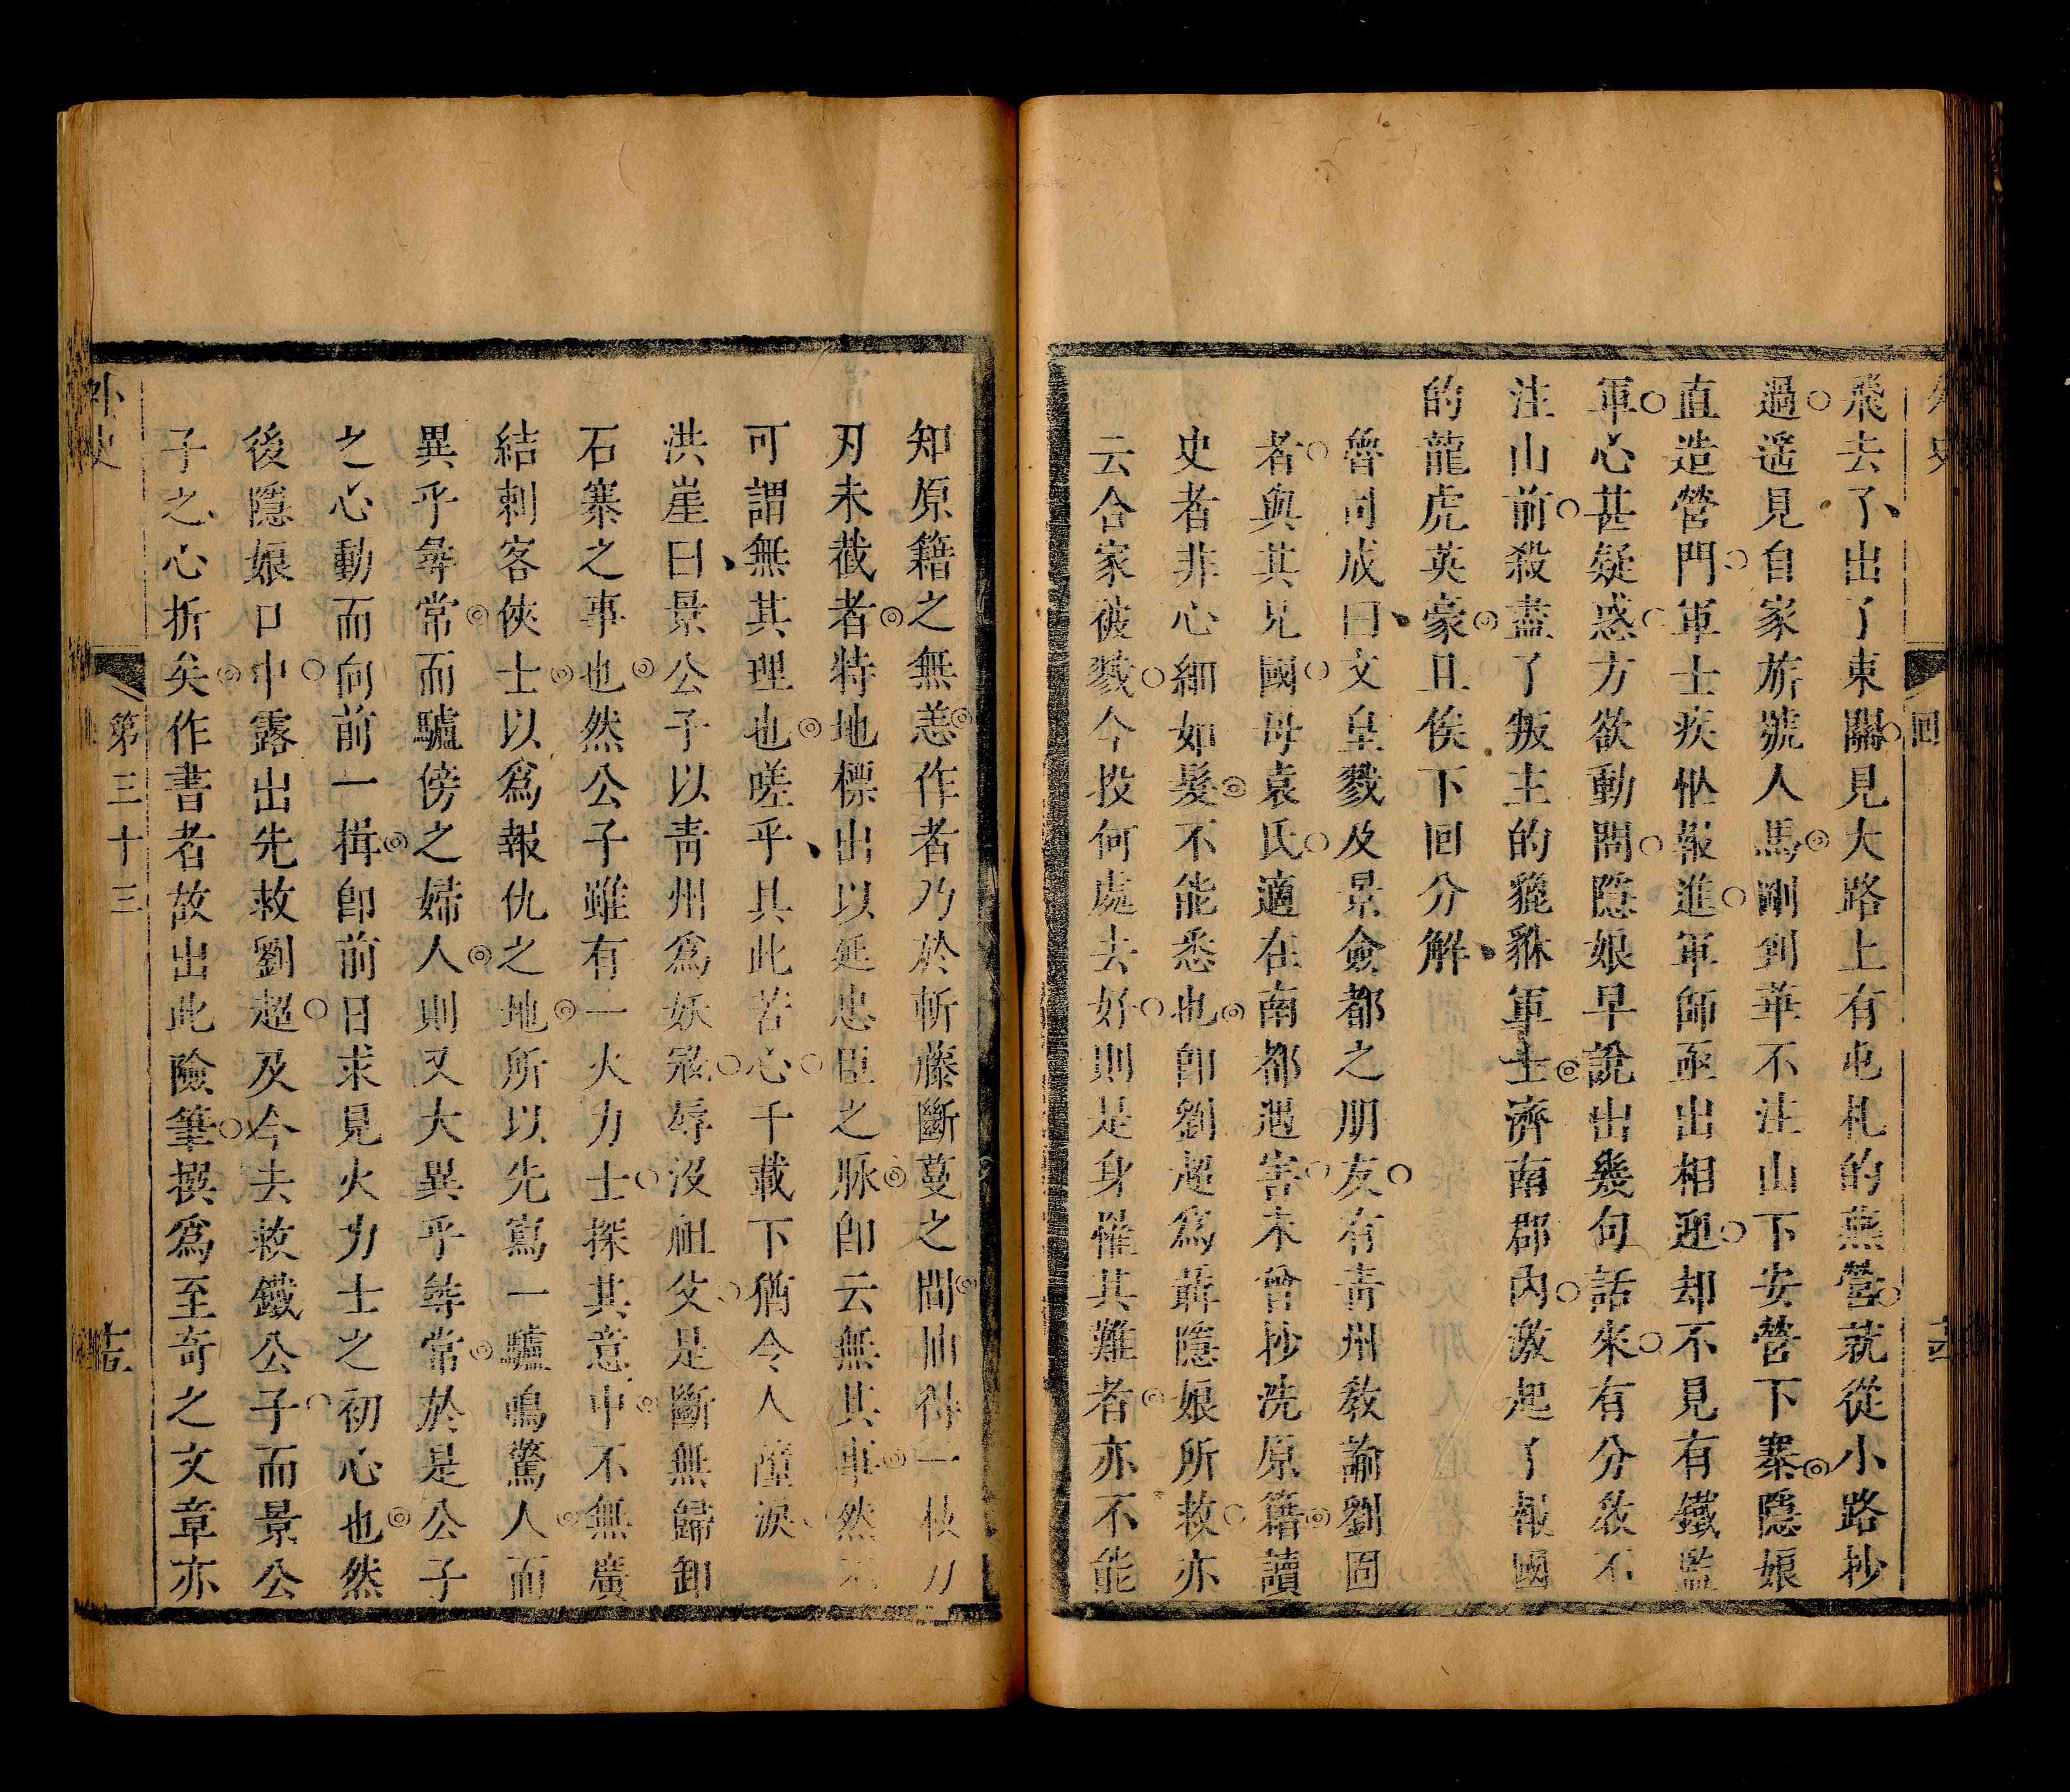 飛去了出了東關見大路上有屯札的燕營就從小路抄
過遙見自家旂號人馬剛到華不注山下安營下寨隱娘
直造營門軍士疾忙報進軍師亟出相迎却不見有鐵監
軍心甚疑惑方欲動問隱娘早說出幾句話來有分敎不
注山前殺盡了叛主的貔貅軍士濟南郡內激起了報國
的龍虎英豪且俟下回分解
魯司成曰文皇戮及景僉都之朋友有靑州敎諭劉固
者與其兄國母袁氏適在南都遇害未曾抄洗原籍讀
史者非心細如髮不能悉也卽劉超爲聶隱娘所救亦
云合家被戮今投何處去好則是身罹其難者亦不能
知原籍之無恙作者乃於斬藤斷蔓之間抽得一枝刀
刃未截者特地標出以延忠臣之脈卽云無其事然
可謂無其理也嗟乎具此苦心千載下猶令人墮淚
洪崖曰景公子以靑州爲妖寇辱沒祖父是斷無歸卸
石寨之事也然公子雖有一火力士探其意中不無廣
結刺客俠士以爲報仇之地所以先寫一驢鳴驚人而
異乎尋常而驢傍之婦人則又大異乎尋常於是公子
之心動而向前一揖卽前日求見火力士之初心也然
後隱娘口中露出先救劉超及今去救鐵公子而景公
子之心折矣作書者故出此險筆撰爲至奇之文章亦
外史
第三十三